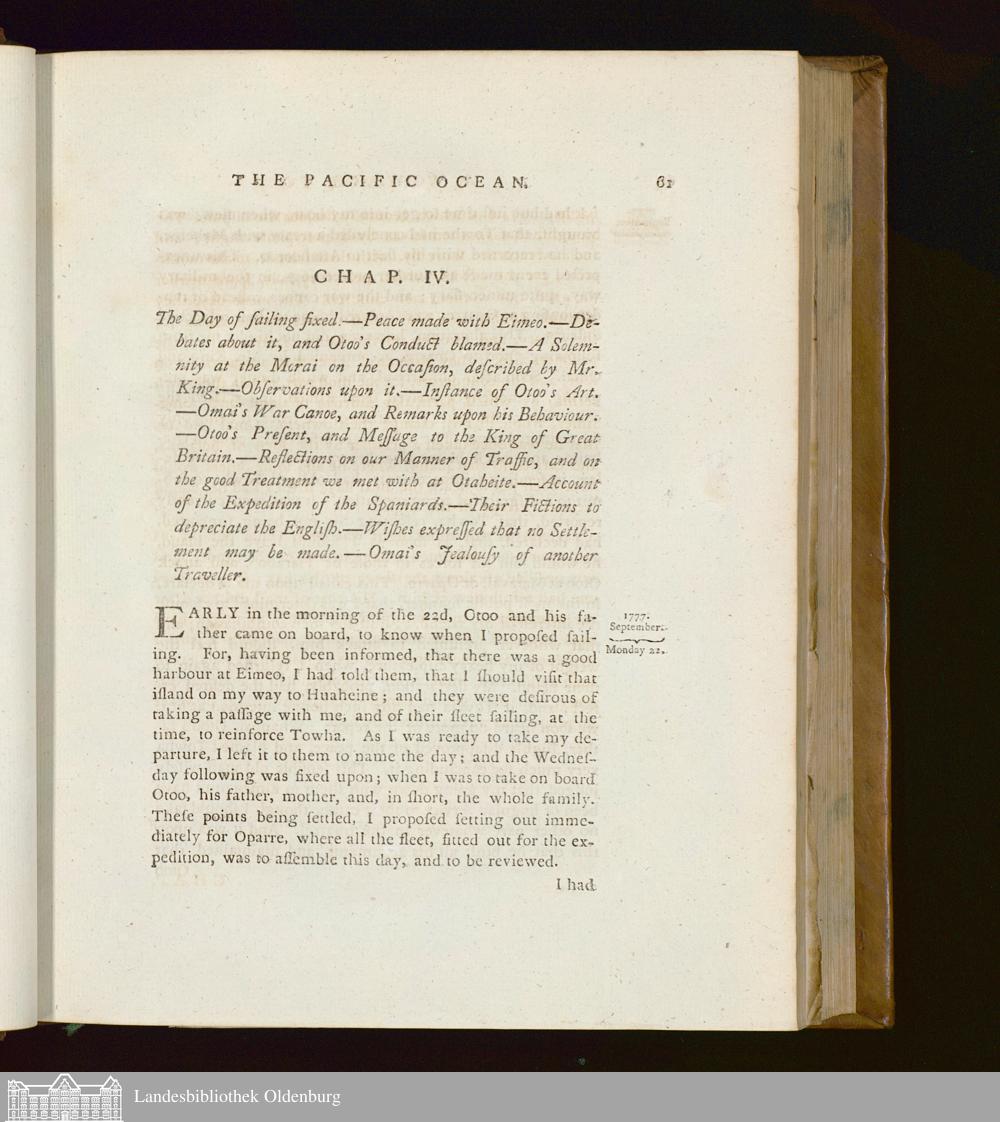 THE PACIFIC OCEAN. 61
CHAP. IV.
The Day of ſailing fixed.—Peace made with Eimeo.—De-
bates about it, and Otoo's Conduct blamed.—A Solem-
nity at the Morai on the Occaſion, deſcribed by Mr.
King.—Obſervations upon it.—Inſtance of Otoo's Art.
—Omai's War Canoe, and Remarks upon his Behaviour.
—Otoo's Preſent, and Meſſage to the King of Great
Britain.—Reflections on our Manner of Traffic, and on
the good Treatment we met with at Otaheite.—Account
of the Expedition of the Spaniards.—Their Fictions to
depreciate the Engliſh.—Wiſhes expreſſed that no Settle-
ment may be made.—Omai's Jealouſy of another
Traveller.
EARLY in the morning of the 22d, Otoo and his fa-
ther came on board, to know when I propoſed ſail-
ing. For, having been informed, that there was a good
harbour at Eimeo, I had told them, that I ſhould viſit that
iſland on my way to Huaheine; and they were deſirous of
taking a paſſage with me, and of their fleet ſailing, at the
time, to reinforce Towha. As I was ready to take my de-
parture, I left it to them to name the day; and the Wedneſ-
day following was fixed upon; when I was to take on board
Otoo, his father, mother, and, in ſhort, the whole family.
Theſe points being ſettled, I propoſed ſetting out imme-
diately for Oparre, where all the fleet, fitted out for the ex-
pedition, was to aſſemble this day, and to be reviewed.
I had
1777.
September.
Monday 22.
Landesbibliothek Oldenburg